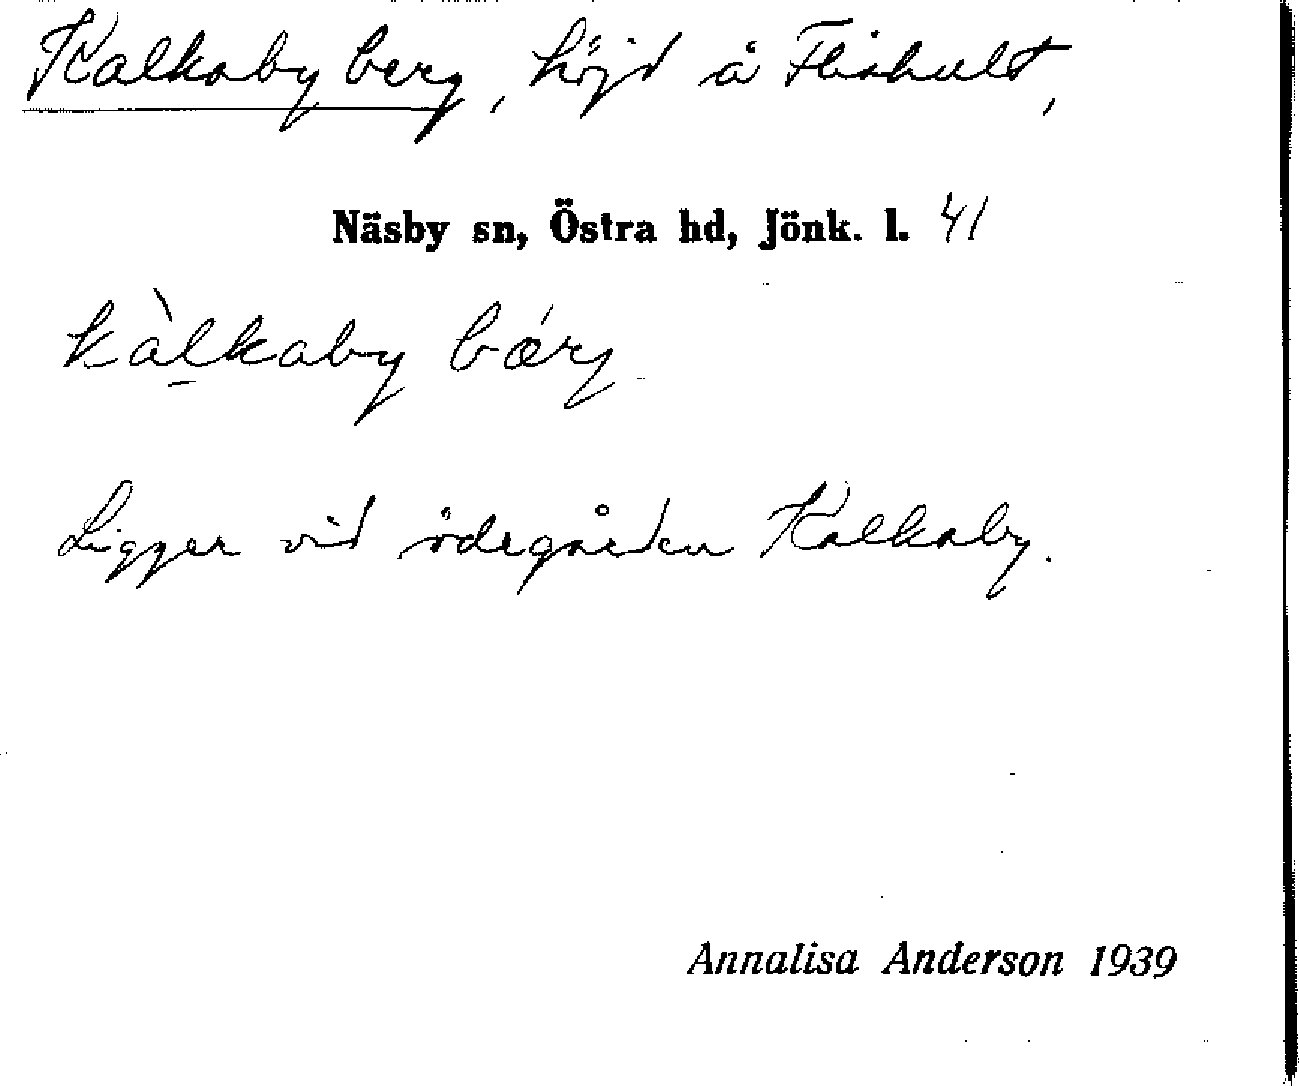 Kalkaby berg, höjd å Fliahult,
Näsby sn, Östra hd, Jönk. l. 41
kàlkaby bǽrj
Ligger vid ödegården Kalkaby.
Annalisa Anderson 1939